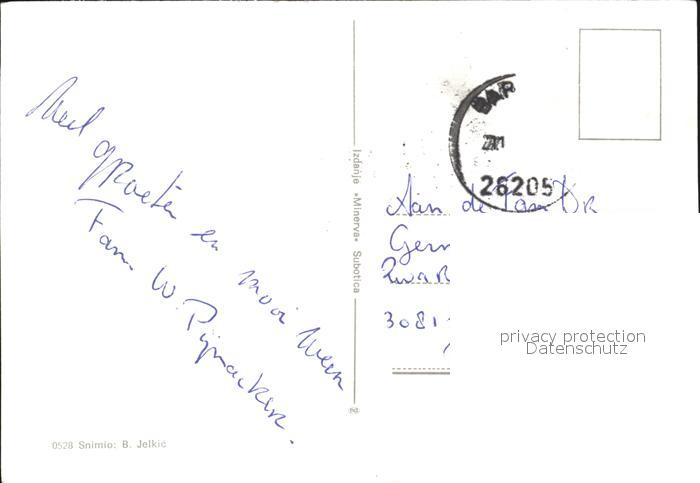 Veel groeten en mooi weer
Fam. W. Pijnacker.
0528 Snimio: B. Jelkić
Izdanje »Minerva« Subotica
BAR
26205
Aan de Fam
3081
privacy protection
Datenschutz